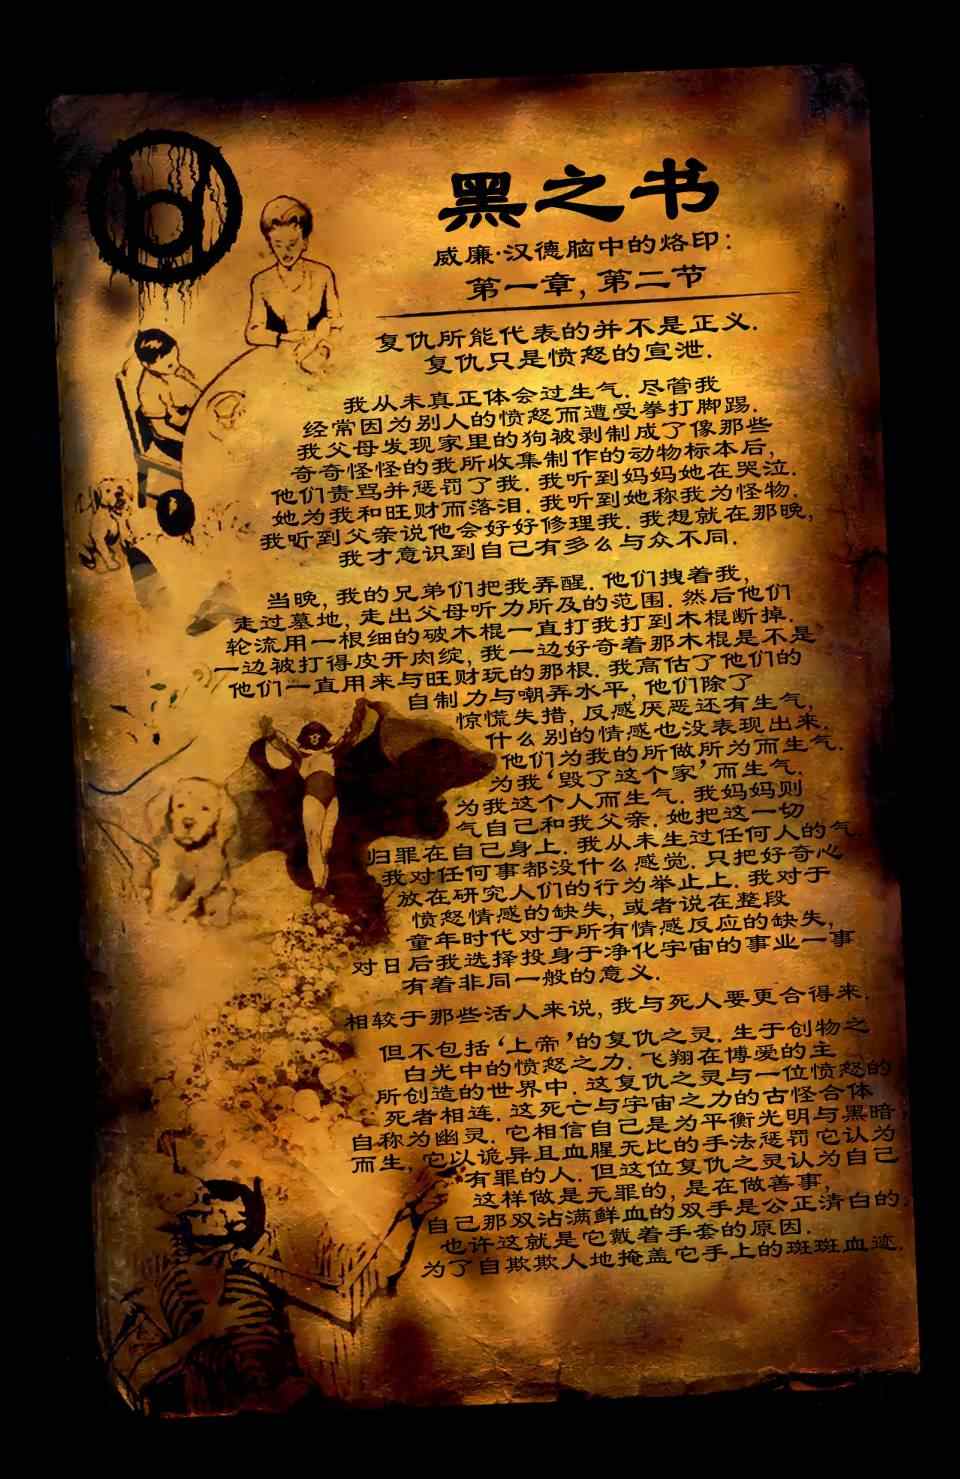 黑之书
威廉·汉德脑中的烙印：
第一章，第二节
复仇所能代表的并不是正义.
复仇只是愤怒的宣泄.
我从未真正体会过生气. 尽管我
经常因为别人的愤怒而遭受拳打脚踢.
我父母发现家里的狗被剥制成了像那些
奇奇怪怪的我所收集制作的动物标本后,
他们责骂并惩罚了我. 我听到妈妈她在哭泣.
她为我和旺财而落泪. 我听到她称我为怪物.
我听到父亲说他会好好修理我. 我想就在那晚,
我才意识到自己有多么与众不同.
当晚, 我的兄弟们把我弄醒. 他们拽着我,
走过墓地, 走出父母听力所及的范围. 然后他们
轮流用一根细的破木棍一直打我打到木棍断掉.
一边被打得皮开肉绽, 我一边好奇着那木棍是不是
他们一直用来与旺财玩的那根. 我高估了他们的
自制力与嘲弄水平, 他们除了
惊慌失措, 反感厌恶还有生气,
什么别的情感也没表现出来.
他们为我的所做所为而生气.
为我‘毁了这个家’而生气.
为我这个人而生气. 我妈妈则
气自己和我父亲. 她把这一切
归罪在自己身上. 我从未生过任何人的气.
我对任何事都没什么感觉. 只把好奇心
放在研究人们的行为举止上. 我对于
愤怒情感的缺失, 或者说在整段
童年时代对于所有情感反应的缺失,
对日后我选择投身于净化宇宙的事业一事
有着非同一般的意义.
相较于那些活人来说, 我与死人要更合得来.
但不包括‘上帝’的复仇之灵. 生于创物之
白光中的愤怒之力. 飞翔在博爱的主
所创造的世界中. 这复仇之灵与一位愤怒的
死者相连. 这死亡与宇宙之力的古怪合体
自称为幽灵. 它相信自己是为平衡光明与黑暗
而生, 它以诡异且血腥无比的手法惩罚它认为
有罪的人. 但这位复仇之灵认为自己
这样做是无罪的, 是在做善事,
自己那双沾满鲜血的双手是公正清白的.
也许这就是它戴着手套的原因.
为了自欺欺人地掩盖它手上的斑斑血迹.